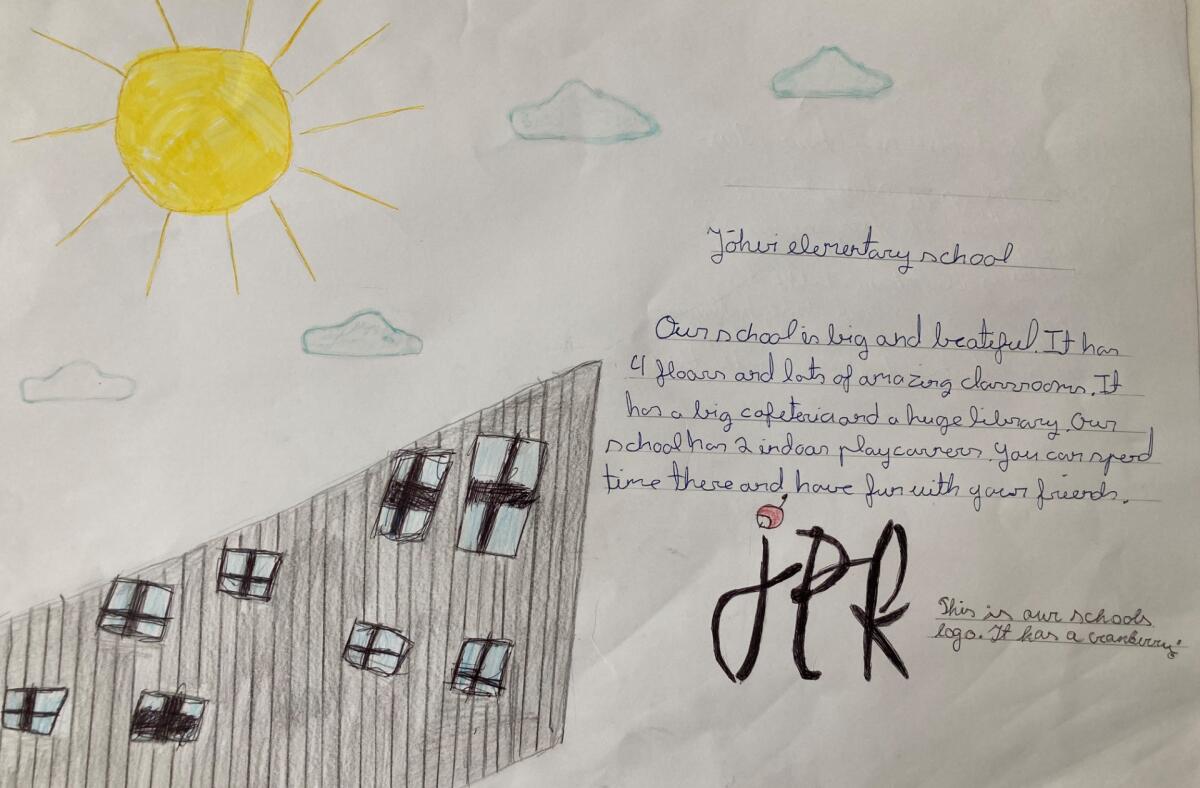 Jõhvi elementary school
Our school is big and beateful. It has
4 floars and lots of amazing classrooms. It
has a big cafeteria and a huge library. Our
school has 2 indoor playcorners. You can spend
time there and have fun with your friends.
jPK
This is our schools
logo. It has a cranberry.